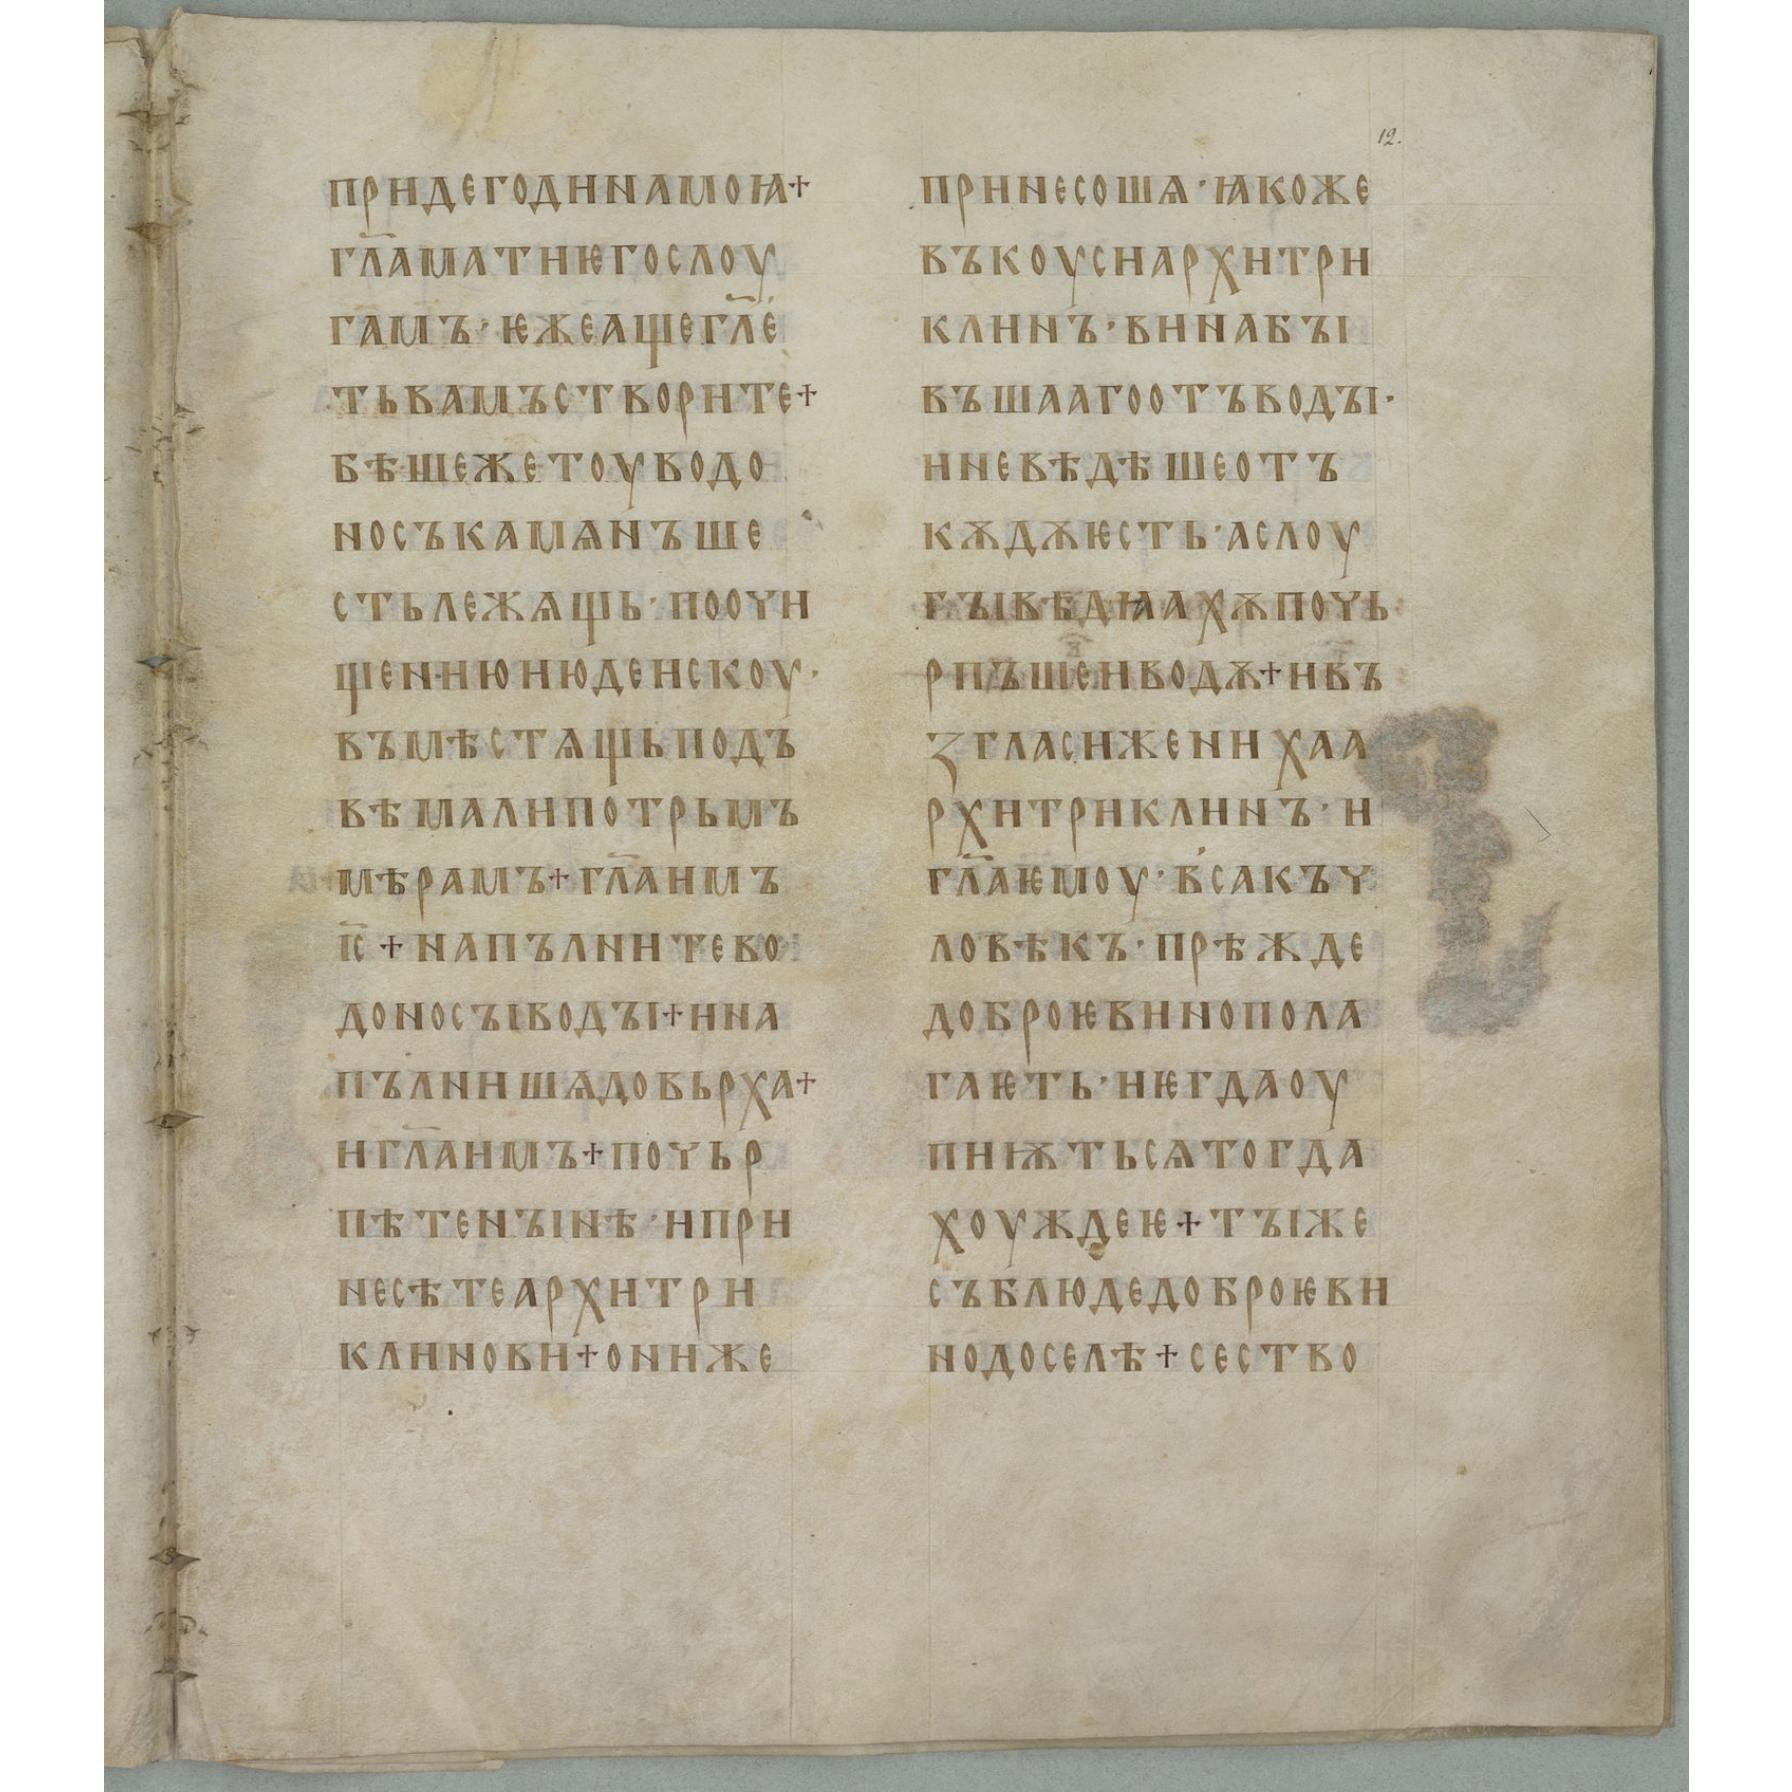 12.
придегодинамоꙗ+
гл҃аматиѥгослоу
гамъ·ѥжеащегл҃е
тьвамъстворите+
бѣшежетоуводо
носъкамѧнъше
стьлежѧщь·поочи
щениюиюденскоу·
въмѣстѧщьподъ
вѣмалипотрьмъ
мѣрамъ+гл҃аимъ
і҃с+напълнитево
доносꙑводꙑ+ина
пълнишѧдовьрха+
игл҃аимъ+почьр
пѣтенꙑнѣ·ипри
несѣтеархитри
клинови+ониже
принесошѧ·ꙗкоже
въкоусиархитри
клинъ·винабꙑ
въшаагоотъводꙑ·
иневѣдѣшеотъ
кѫдѫѥсть·аслоу
гꙑвѣдꙗахѫпочь
рпъшеиводѫ+ивъ
згласижениха а
рхитриклинъ·и
гл҃аѥмоу·в'сакъч
ловѣкъ·прѣжде
доброѥвинопола
гаѥть·иѥгдаоу
пиѭтьсѧтогда
хоуждеѥ+тꙑже
съблюдедоброѥви
нодоселѣ+сество